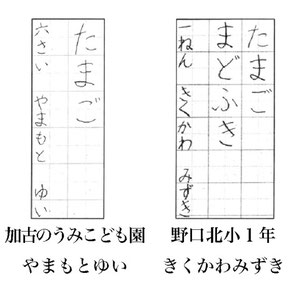 たまご
六さい やまもと ゆい
加古のうみこども園
やまもとゆい
たまご
まどふき
一ねん きくかわ みずき
野口北小1年
きくかわみずき